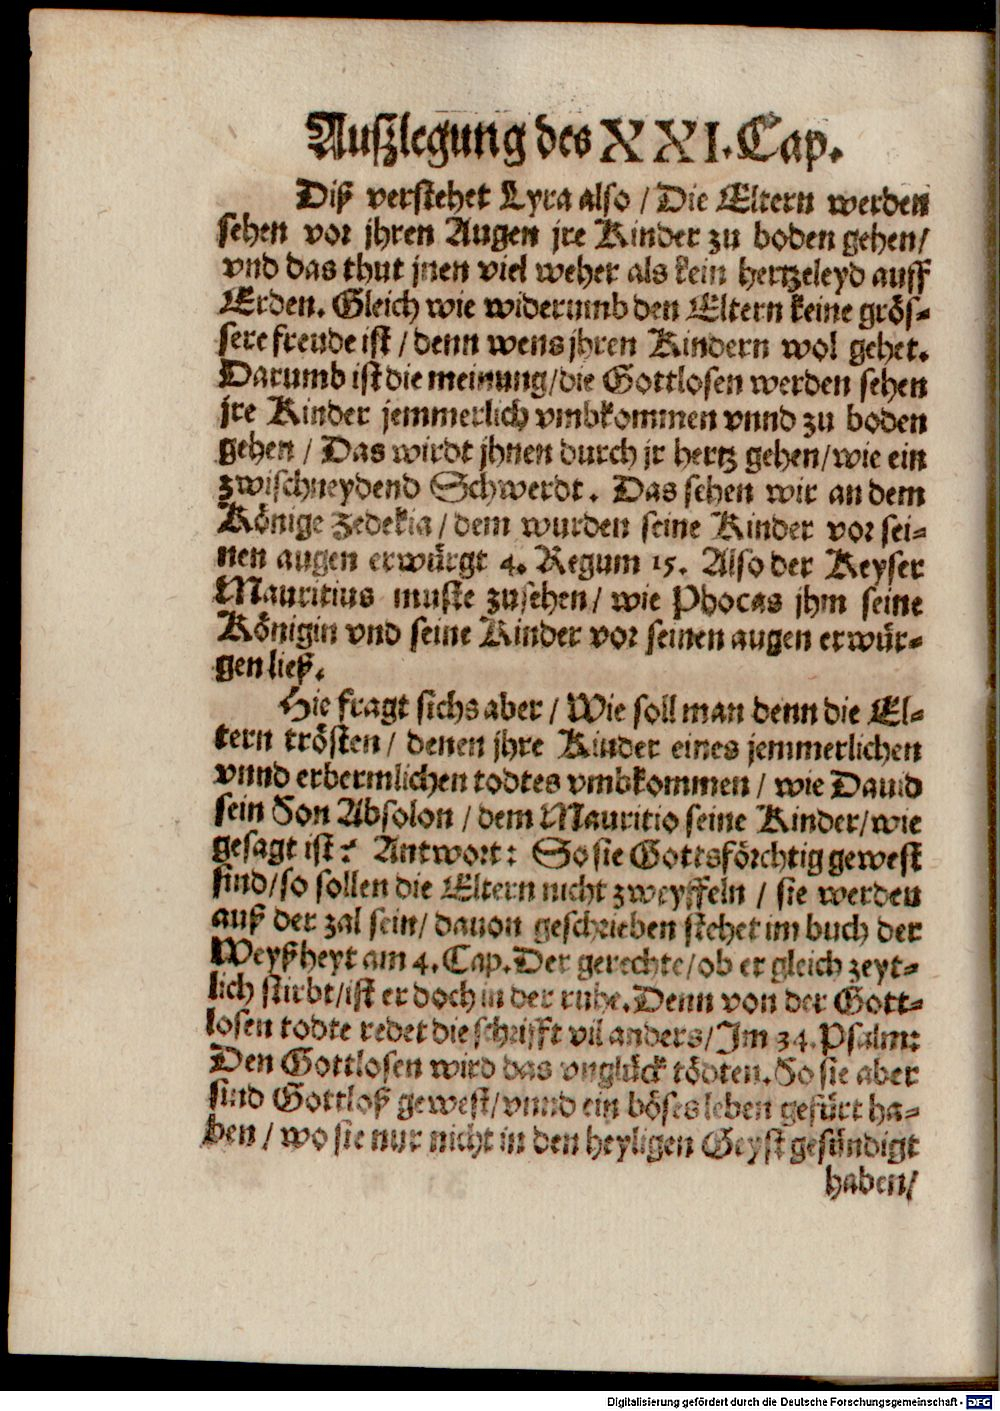 Auſzlegung des XXI. Cap.
Diß verſtehet Lyra alſo / Die Eltern werden
ſehen vor jhren Augen jre Kinder zu boden gehen/
vnd das thut jnen viel weher als kein hertzeleyd auff
Erden. Gleich wie widerumb den Eltern keine gröſ-
ſere freude iſt / denn wens jhren Kindern wol gehet.
Darumb iſt die meinung/die Gottloſen werden ſehen
jre Kinder jemmerlich vmbkommen vnnd zu boden
gehen / Das wirdt jhnen durch jr hertz gehen/wie ein
zwiſchneydend Schwerdt. Das ſehen wir an dem
Könige Zedekia / dem wurden ſeine Kinder vor ſei-
nen augen erwürgt 4. Regum 15. Alſo der Keyſer
Mauritius muſte zuſehen/ wie Phocas jhm ſeine
Königin vnd ſeine Kinder vor ſeinen augen erwür-
gen ließ.
Hie fragt ſichs aber / Wie ſoll man denn die El-
tern tröſten/ denen jhre Kinder eines jemmerlichen
vnnd erbermlichen todtes vmbkommen / wie Dauid
ſein Son Abſolon / dem Mauritio ſeine Kinder/wie
geſagt iſt? Antwort: So ſie Gottsförchtig geweſt
ſind/ſo ſollen die Eltern nicht zweyffeln / ſie werden
auß der zal ſein/ dauon geſchrieben ſtehet im buch der
Weyßheyt am 4. Cap. Der gerechte/ob er gleich zeyt-
lich ſtirbt/iſt er doch in der ruhe. Denn von der Gott-
loſen todte redet die ſchrifft vil anders/Im 34. Pſalm:
Den Gottloſen wird das vnglück tödten. So ſie aber
ſind Gottloß geweſt/vnnd ein böſes leben gefürt ha-
ben / wo ſie nur nicht in den heyligen Geyſt geſündigt
haben/
Digitalisierung gefördert durch die Deutsche Forschungsgemeinschaft - DFG